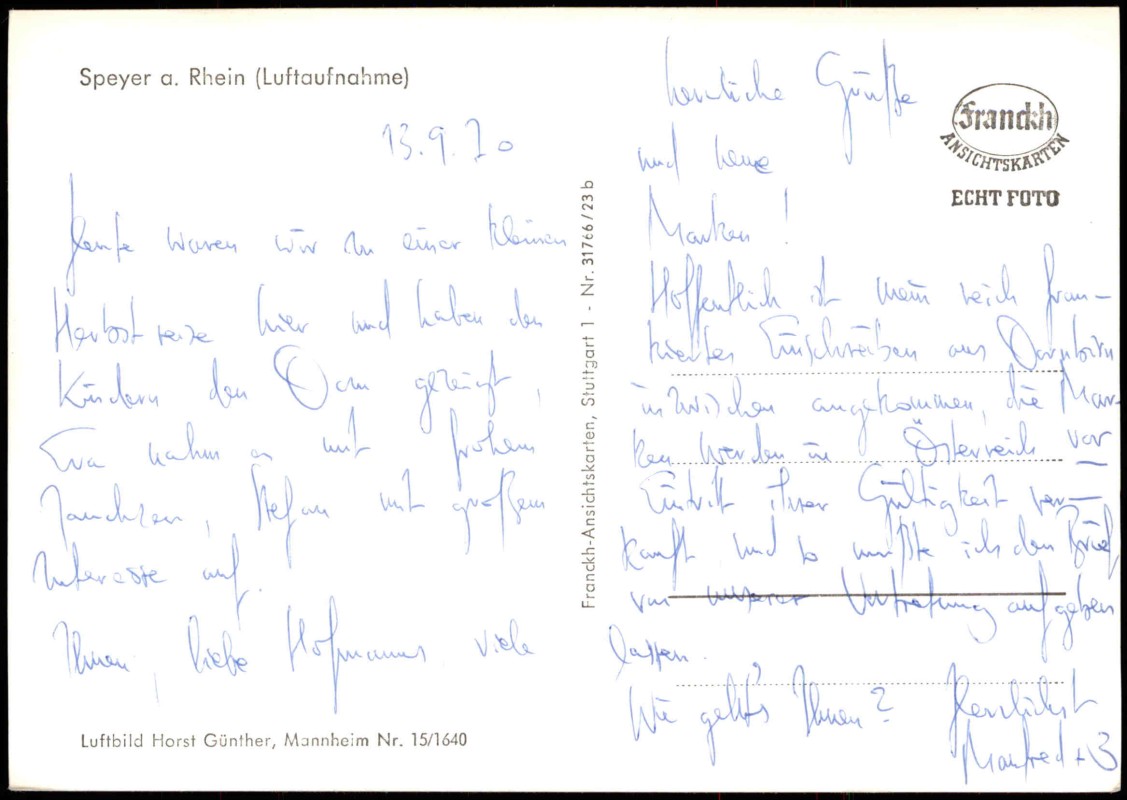 Speyer a. Rhein (Luftaufnahme)
13.9.70
Heute waren wir in einer kleinen
Herbstreise hier und haben den
Kindern den Dom gezeigt,
Eva nahm es mit frohem
Jauchzen, Stefan mit großem
Interesse auf.
Ihnen, liebe Hofmanns viele
Luftbild Horst Günther, Mannheim Nr. 15/1640
Franckh-Ansichtskarten, Stuttgart 1 - Nr. 31766/23 b
herzliche Grüße
und neue
Marken!
Hoffentlich ist mein reich fran-
kiertes Einschreiben aus Dornbirn
inzwischen angekommen, die Mar-
ken werden in Österreich vor
Eintritt ihrer Gültigkeit ver-
kauft und so mußte ich den Brief
von unserer Vertretung aufgeben
lassen.
Wie geht's Ihnen? Herzlichst
Manfred + B
Franckh
ANSICHTSKARTEN
ECHT FOTO